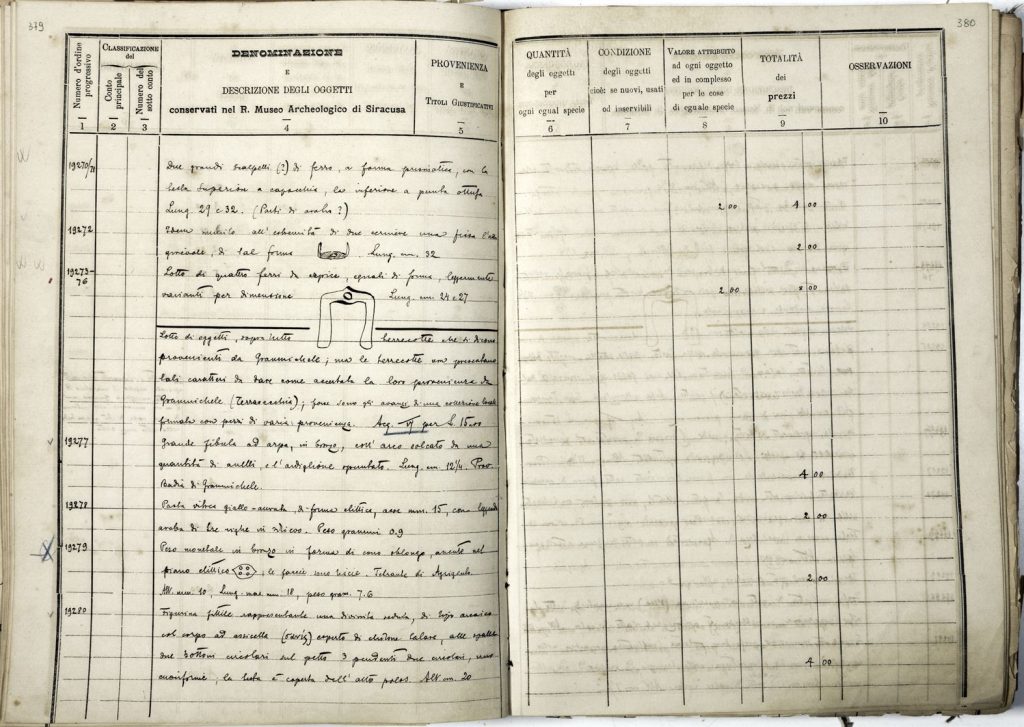 379
Numero d'ordine progressivo
CLASSIFICAZIONE del
Conto principale
Numero del sotto conto
DENOMINAZIONE
E
DESCRIZIONE DEGLI OGGETTI
conservati nel R. Museo Archeologico di Siracusa
PROVENIENZA
E
TITOLI GIUSTIFICATIVI
1 2 3 4 5
19270/71
Due grandi scalpelli (?) di ferro, a forma prismatica, con la
testa superiore a capocchia, la inferiore a punta ottusa
Lung. 29 e 32. (Parti di aratro?)
19272
Idem all'estremità di due cerniere una fissa l'altra
girevole, di tal forma Lung. cm. 32
19273-76
Lotto di quattro ferri da eguali di forma, leggermente
varianti per dimensione Lung. cm 24 e 27
Lotto di oggetti, sopratutto terrecotte che si dicono
provenienti da Grammichele; ma le terrecotte non presentano
tali caratteri da dare come accertata la loro provenienza da
Grammichele (Terravecchia); forse sono gli avanzi di una collezione locale
formata con pezzi di varia provenienza. Acq. per L. 15.00
19277
Grande fibula ad arpa, in bronzo, coll'arco solcato da una
quantità di anelli, e l'ardiglione spuntato. Lung. cm. 12¼. Prov.
Badia di Grammichele.
19278
Pasta vitrea giallo-aurata, di forma ellittica, asse mm. 15, con leggenda
araba di tre righe in rilievo. Peso grammi 0.9
19279
Peso monetale in bronzo in forma di cono oblungo, avente nel
piano ellittico , le faccie sono liscie. Tetrante di Agrigento
Alt. mm. 10, Lung. mas. mm. 18, peso gram. 7.6
19280
Figurina fittile rappresentante una divinità seduta, di tipo arcaico
col corpo ad assicella coperto di chitone talare, alle spalle
due bottoni circolari sul petto 3 pendenti due circolari, uno
, la testa è coperta dall'alto polos. Alt cm. 20
380
QUANTITÀ
degli oggetti
per
ogni egual specie
CONDIZIONE
degli oggetti
cioè: se nuovi, usati
od inservibili
VALORE ATTRIBUITO
ad ogni oggetto
ed in complesso
per le cose
di eguale specie
TOTALITÀ
dei
prezzi
OSSERVAZIONI
6 7 8 9 10
2 00 4 00
2 00
2 00 8 00
4 00
2 00
2 00
4 00